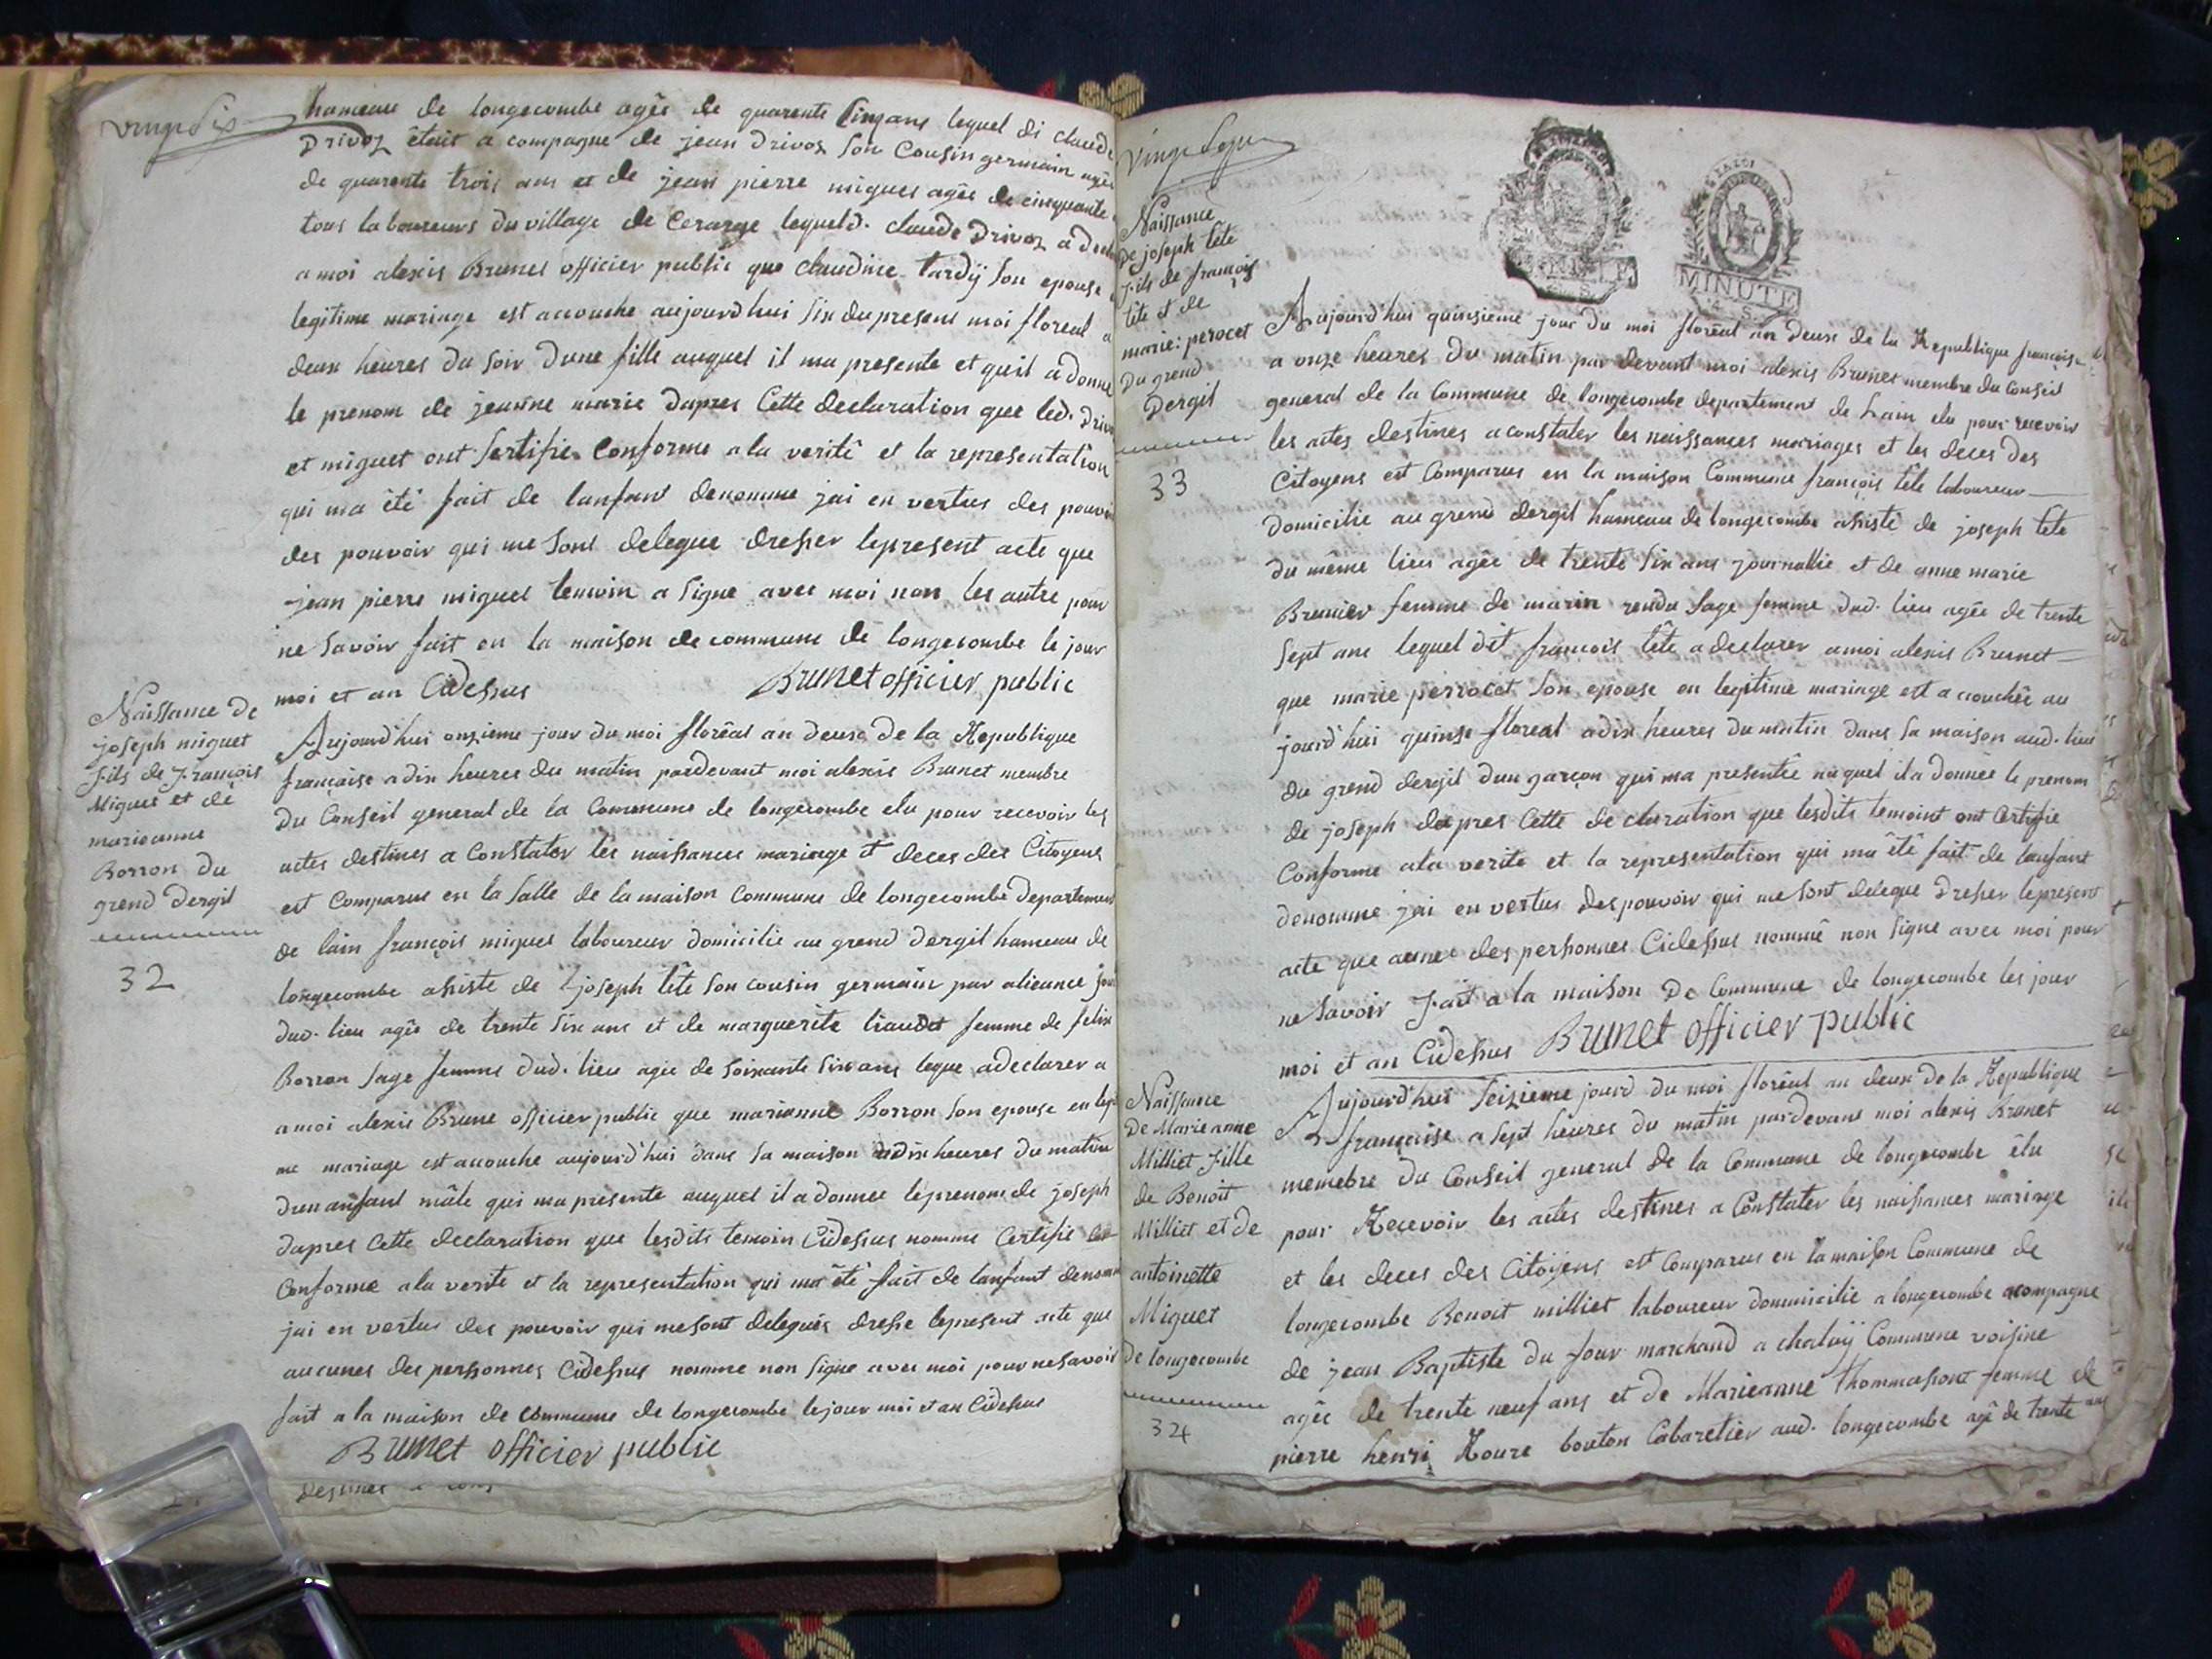 vingt six
hameau de longecombe agée de quarente cinq ans lequel di claude
Drivoz étoit a compagne de jean Drivoz son Cousin germain agée
de quarente trois ans et de jean pierre miguet agée de cinquante
tous laboureurs du village de Cerarge lequel d. claude Drivoz a decl
a moi alexis Brunet officier public que claudine tardÿ son epouse
legitime mariage est acouche aujourdhui six du present moi floreal a
deux heures du soir dune fille auquel il ma presente et quil a donne
le prenom de jeanne marie dapres Cette declaration que led. Driv
et miguet ont Sertifie Conforme a la verité et la representation
qui ma êtê fait de lanfant denomme jai en vertus des pouvoi
des pouvoir qui me sont delegue dresser lepresent acte que
jean pierre miguet temoin a signe avec moi non les autre pour
ne savoir fait en la maison de commune de longecombe le jour
moi et an Cidessus Brunet officier public
Naissance de
joseph miguet
fils de François
Miguet et de
marieanne
Borron du
grend Dergit
32
Aujourd'hui onzieme jour du moi floréal an deux de la Republique
française a dix heures du matin pardevant moi alexis Brunet membre
du Conseil general de la Commune de longecombe elu pour recevoir les
actes destines a Constater les naissances mariage et deces des Citoyens
est Comparus en la Salle de la maison Commune de longecombe departement
de lain françois miguet laboureur domicilie au grend dergit hameau de
longecombe assiste de joseph tête son cousin germain par alieance
dud. lieu agée de trente six ans et de marguerite liaudet femme de felix
Borron sage femme dud. lieu agée de soixante six ans leque adeclarer a
a moi alexis Brune officier public que marianne Borron son epouse en legi
me mariage est acouche aujourd'hui dans sa maison adix heures du matin
dun anfant mâle qui ma presente auquel il a donnee leprenom de joseph
dapres Cette declaration que lesdits temoin Cidessus nomme Certifie Con
Conforme a la verite et la representation qui ma êtê fait de lanfant denomm
jai en vertus des pouvoir qui mesont delegués dresse lepresent acte que
aucunes des personnes Cidessus nomme non signe avec moi pour nesavoir
fait a la maison de commune de longecombe lejour moi et an Cidessus
Brunet officier public
destines a cons
vingt sept
MINUTE
MINUTE
Naissance
de joseph tête
fils de françois
tête et de
marie: perocet
du grend
Dergit
33
Aujourd'hui quinsieme jour du moi floréal an deux de la Republique françoise
a onze heures du matin par devant moi alexis Brunet membre du Conseil
general de la Commune de longecombe departement de Lain elu pour recevoir
les actes destines a constater les naissances mariages et les deces des
Citoyens est Comparus en la maison Commune françois tête laboureur
domicilie au grend dergit hameau de longecombe assiste de joseph tete
du même lieu agée de trente six ans journallie et de anne marie
Brunier femme de marin rendu sage femme dud. lieu agée de trente
sept ans lequel dit françois tête a declarer a moi alexis Brunet
que marie perrocet son epouse en legitime mariage est a couchée au
jourd'hui quinse floreal adix heures du matin dans sa maison aud. lieu
du grend dergit dun garçon qui ma presentée auquel il a donnee le prenom
de joseph dapres Cette declaration que lesdits temoint ont Certifie
Conforme a la verite et la representation qui ma êtê fait de lanfant
denomme jai en vertus des pouvoir qui me sont delegue dresser lepresent
acte que aune des personnes Cidessus nommé non signe avec moi pour
ne savoir Fait a la maison De Commune de longecombe les jour
moi et an Cidessus Brunet officier public
Naissance
De Marie anne
Milliet Fille
de Benoît
Milliet et de
antoinette
Miguet
De longecombe
34
Aujourd'hui Seizieme jourd du moi floréal an deux de la Republique
française a sept heures du matin pardevans moi alexis Brunet
memebre du Conseil general de la Commune de longecombe êlu
pour Recevoir les actes destines a Constater les naissances mariage
et les deces des Citoyens est Comparus en la maison Commune de
longecombe Benoit milliet laboureur dommicilie a longecombe acompagne
de jean Baptiste du four marchand a chaleÿ Commune voisine
agée de trente neuf ans et de Marieanne thommassont femme de
pierre henri Roure bouton Cabaretier aud. longecombe agé de trente ans